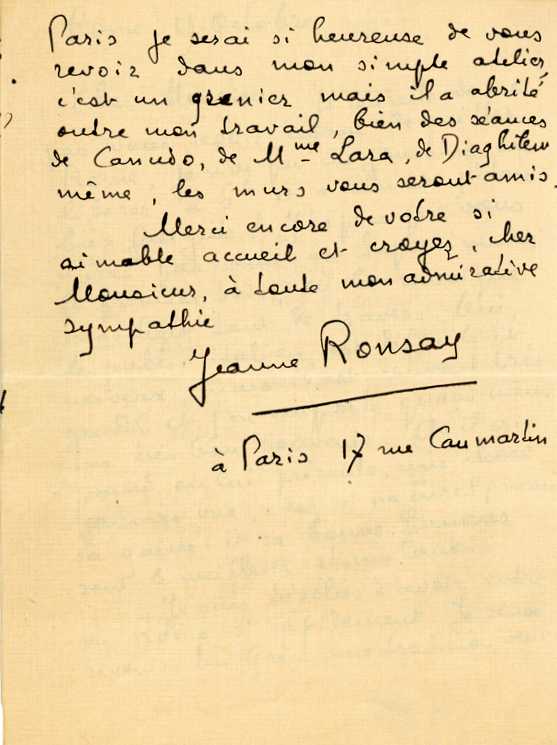 Paris je serai si heureuse de vous
revoir dans mon simple atelier,
c'est un grenier mais il a abrité
outre mon travail, bien des séances
de Canudo, de Mme Lara, de Diaghilew
même, les murs vous seront amis.
Merci encore de votre si
aimable accueil et croyez, cher
Monsieur, à toute mon admirative
sympathie
Jeanne Ronsay
à Paris 17 rue Caumartin